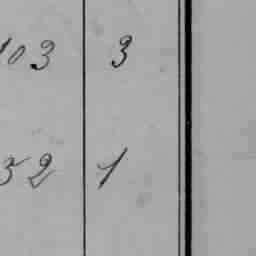 103 3
52 1